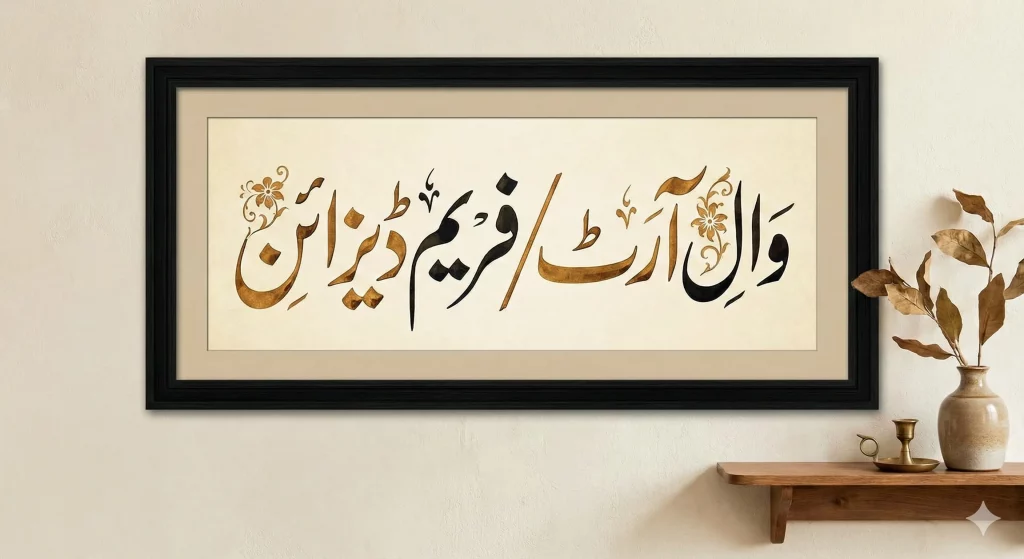 وَالِ آرَٹ/فریم ڈیزائنِ